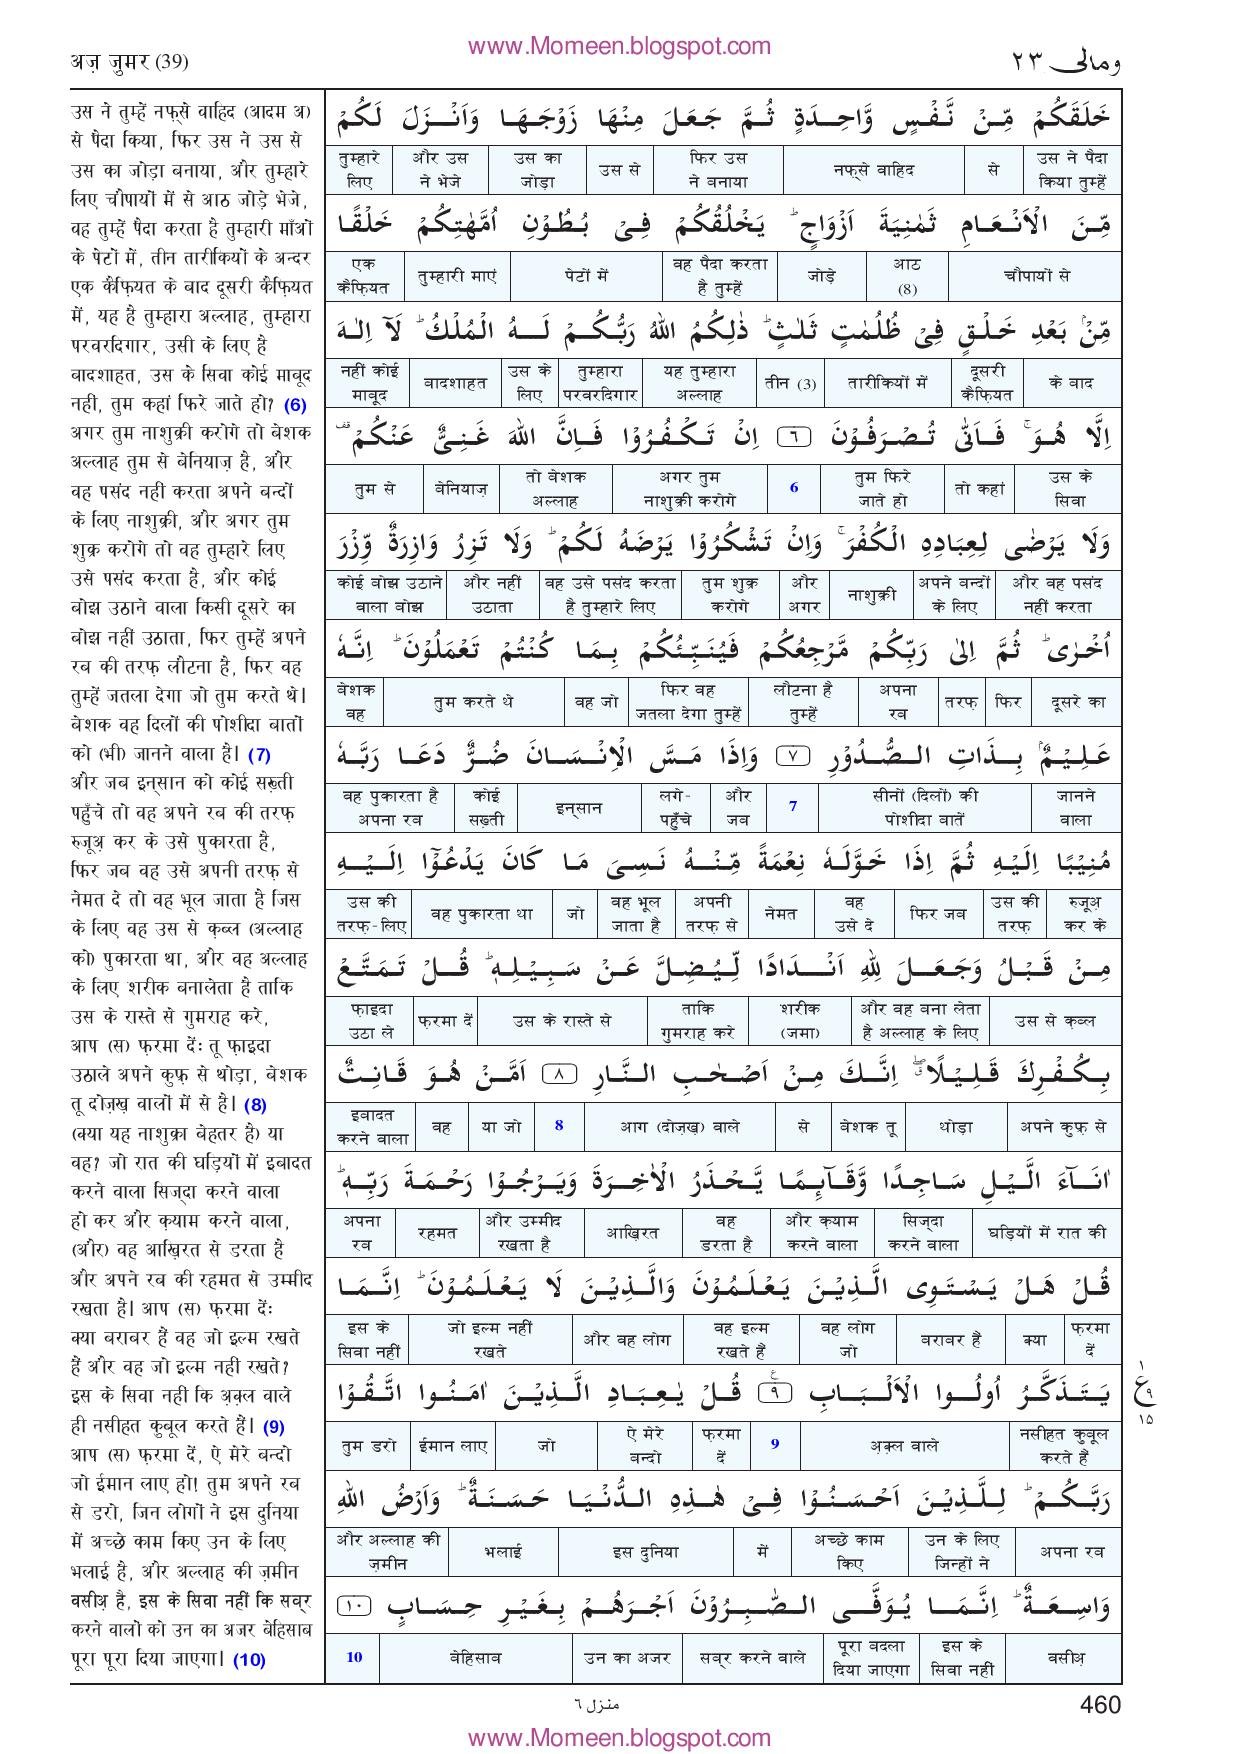 www.Momeen.blogspot.com
अज़ ज़ुमर (39)
ومالی ٢٣
उस ने तुम्हें नफ़्से वाहिद (आदम अ)
से पैदा किया, फिर उस ने उस से
उस का जोड़ा बनाया, और तुम्हारे
लिए चौपायों में से आठ जोड़े भेजे,
वह तुम्हें पैदा करता है तुम्हारी माँओं
के पेटों में, तीन तारीकियों के अन्दर
एक कैफ़ियत के बाद दूसरी कैफ़ियत
में, यह है तुम्हारा अल्लाह, तुम्हारा
परवरदिगार, उसी के लिए है
बादशाहत, उस के सिवा कोई माबूद
नहीं, तुम कहां फिरे जाते हो? (6)
अगर तुम नाशुक्री करोगे तो बेशक
अल्लाह तुम से बेनियाज़ है, और
वह पसंद नहीं करता अपने बन्दों
के लिए नाशुक्री, और अगर तुम
शुक्र करोगे तो वह तुम्हारे लिए
उसे पसंद करता है, और कोई
बोझ उठाने वाला किसी दूसरे का
बोझ नहीं उठाता, फिर तुम्हें अपने
रब की तरफ़ लौटना है, फिर वह
तुम्हें जतला देगा जो तुम करते थे।
बेशक वह दिलों की पोशीदा बातों
को (भी) जानने वाला है। (7)
और जब इन्सान को कोई सख़्ती
पहुँचे तो वह अपने रब की तरफ़
रुजूअ़ कर के उसे पुकारता है,
फिर जब वह उसे अपनी तरफ़ से
नेमत दे तो वह भूल जाता है जिस
के लिए वह उस से क़ब्ल (अल्लाह
को) पुकारता था, और वह अल्लाह
के लिए शरीक बनालेता है ताकि
उस के रास्ते से गुमराह करे,
आप (स) फ़रमा दें: तू फ़ाइदा
उठाले अपने कुफ़्र से थोड़ा, बेशक
तू दोज़ख़ वालों में से है। (8)
(क्या यह नाशुक्रा बेहतर है) या
वह? जो रात की घड़ियों में इबादत
करने वाला सिज्दा करने वाला
हो कर और क़याम करने वाला,
(और) वह आख़िरत से डरता है
और अपने रब की रहमत से उम्मीद
रखता है। आप (स) फ़रमा दें:
क्या बराबर हैं वह जो इल्म रखते
हैं और वह जो इल्म नहीं रखते?
इस के सिवा नहीं कि अ़क़्ल वाले
ही नसीहत कुबूल करते हैं। (9)
आप (स) फ़रमा दें, ऐ मेरे बन्दो
जो ईमान लाए हो! तुम अपने रब
से डरो, जिन लोगों ने इस दुनिया
में अच्छे काम किए उन के लिए
भलाई है, और अल्लाह की ज़मीन
वसीअ़ है, इस के सिवा नहीं कि सब्र
करने वालों को उन का अजर बेहिसाब
पूरा पूरा दिया जाएगा। (10)
خَلَقَكُمْ مِّنْ نَّفْسٍ وَّاحِدَةٍ ثُمَّ جَعَلَ مِنْهَا زَوْجَهَا وَاَنْزَلَ لَكُمْ
उस ने पैदा किया तुम्हें से नफ़्से वाहिद फिर उस ने बनाया उस से उस का जोड़ा और उस ने भेजे तुम्हारे लिए
مِّنَ الْاَنْعَامِ ثَمٰنِيَةَ اَزْوَاجٍ ؕ يَخْلُقُكُمْ فِيْ بُطُوْنِ اُمَّهٰتِكُمْ خَلْقًا
चौपायों से आठ (8) जोड़े वह पैदा करता है तुम्हें पेटों में तुम्हारी माएं एक कैफ़ियत
مِّنْۢ بَعْدِ خَلْقٍ فِيْ ظُلُمٰتٍ ثَلٰثٍ ؕ ذٰلِكُمُ اللّٰهُ رَبُّكُمْ لَهُ الْمُلْكُ ؕ لَآ اِلٰهَ
के बाद दूसरी कैफ़ियत तारीकियों में तीन (3) यह तुम्हारा अल्लाह तुम्हारा परवरदिगार उस के लिए बादशाहत नहीं कोई माबूद
اِلَّا هُوَ ۚ فَاَنّٰى تُصْرَفُوْنَ ٦ اِنْ تَكْفُرُوْا فَاِنَّ اللّٰهَ غَنِيٌّ عَنْكُمْ ۫
उस के सिवा तो कहां तुम फिरे जाते हो 6 अगर तुम नाशुक्री करोगे तो बेशक अल्लाह बेनियाज़ तुम से
وَلَا يَرْضٰى لِعِبَادِهِ الْكُفْرَ ۚ وَاِنْ تَشْكُرُوْا يَرْضَهُ لَكُمْ ؕ وَلَا تَزِرُ وَازِرَةٌ وِّزْرَ
और वह पसंद नहीं करता अपने बन्दों के लिए नाशुक्री और अगर तुम शुक्र करोगे वह उसे पसंद करता है तुम्हारे लिए और नहीं उठाता कोई बोझ उठाने वाला बोझ
اُخْرٰى ؕ ثُمَّ اِلٰى رَبِّكُمْ مَّرْجِعُكُمْ فَيُنَبِّئُكُمْ بِمَا كُنْتُمْ تَعْمَلُوْنَ ؕ اِنَّهٗ
दूसरे का फिर तरफ़ अपना रब लौटना है तुम्हें फिर वह जतला देगा तुम्हें वह जो तुम करते थे बेशक वह
عَلِيْمٌۢ بِذَاتِ الصُّدُوْرِ ٧ وَاِذَا مَسَّ الْاِنْسَانَ ضُرٌّ دَعَا رَبَّهٗ
जानने वाला सीनों (दिलों) की पोशीदा बातें 7 और जब लगे- पहुँचे इन्सान कोई सख़्ती वह पुकारता है अपना रब
مُنِيْبًا اِلَيْهِ ثُمَّ اِذَا خَوَّلَهٗ نِعْمَةً مِّنْهُ نَسِيَ مَا كَانَ يَدْعُوْٓا اِلَيْهِ
रुजूअ़ कर के उस की तरफ़ फिर जब वह उसे दे नेमत अपनी तरफ़ से वह भूल जाता है जो वह पुकारता था उस की तरफ़-लिए
مِنْ قَبْلُ وَجَعَلَ لِلّٰهِ اَنْدَادًا لِّيُضِلَّ عَنْ سَبِيْلِهٖ ؕ قُلْ تَمَتَّعْ
उस से क़ब्ल और वह बना लेता है अल्लाह के लिए शरीक (जमा) ताकि गुमराह करे उस के रास्ते से फ़रमा दें फ़ाइदा उठा ले
بِكُفْرِكَ قَلِيْلًا ۖ اِنَّكَ مِنْ اَصْحٰبِ النَّارِ ٨ اَمَّنْ هُوَ قَانِتٌ
अपने कुफ़्र से थोड़ा बेशक तू से आग (दोज़ख़) वाले 8 या जो वह इबादत करने वाला
اٰنَآءَ الَّيْلِ سَاجِدًا وَّقَآئِمًا يَّحْذَرُ الْاٰخِرَةَ وَيَرْجُوْا رَحْمَةَ رَبِّهٖ ؕ
घड़ियों में रात की सिज्दा करने वाला और क़याम करने वाला वह डरता है आख़िरत और उम्मीद रखता है रहमत अपना रब
قُلْ هَلْ يَسْتَوِى الَّذِيْنَ يَعْلَمُوْنَ وَالَّذِيْنَ لَا يَعْلَمُوْنَ ؕ اِنَّمَا
फ़रमा दें क्या बराबर है वह लोग जो वह इल्म रखते हैं और वह लोग जो इल्म नहीं रखते इस के सिवा नहीं
يَتَذَكَّرُ اُولُوا الْاَلْبَابِ ٩ قُلْ يٰعِبَادِ الَّذِيْنَ اٰمَنُوا اتَّقُوْا
١ ع ٩ ١٥
नसीहत कुबूल करते हैं अ़क़्ल वाले 9 फ़रमा दें ऐ मेरे बन्दो जो ईमान लाए तुम डरो
رَبَّكُمْ ؕ لِلَّذِيْنَ اَحْسَنُوْا فِيْ هٰذِهِ الدُّنْيَا حَسَنَةٌ ؕ وَاَرْضُ اللّٰهِ
अपना रब उन के लिए जिन्हों ने अच्छे काम किए में इस दुनिया भलाई और अल्लाह की ज़मीन
وَاسِعَةٌ ؕ اِنَّمَا يُوَفَّى الصّٰبِرُوْنَ اَجْرَهُمْ بِغَيْرِ حِسَابٍ ١٠
वसीअ़ इस के सिवा नहीं पूरा बदला दिया जाएगा सब्र करने वाले उन का अजर बेहिसाब 10
منزل ٦
460
www.Momeen.blogspot.com